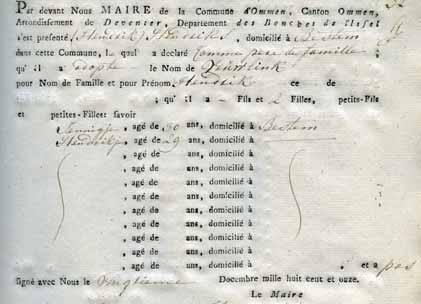 Par devant Nous MAIRE de la Commune d'Ommen, Canton Ommen,
Arrondissement de Deventer, Département des Bouches de l'Issel
s'est présenté Hendrik domicilié à Bestem
dans cette Commune, le quel a déclaré comme père de famille
qu'il a adopté le Nom de
pour Nom de Famille et pour Prénom Hendrik ce de
; qu'il a - Fils et 2 Filles, petits-Fils
et petites-Filles: savoir
Jennigje, agé de 30 ans, domicilié à Bestem
Hendrikje, agé de 29 ans, domicilié à
, agé de ans, domicilié à
, agé de ans, domicilié à
, agé de ans, domicilié à
, agé de ans, domicilié à
, agé de ans, domicilié à
, agé de ans, domicilié à
, agé de ans, domicilié à
, agé de ans, domicilié à
, agé de ans, domicilié à ; et a pas
signé avec Nous le Decembre mille huit cent et onze.
Le Maire